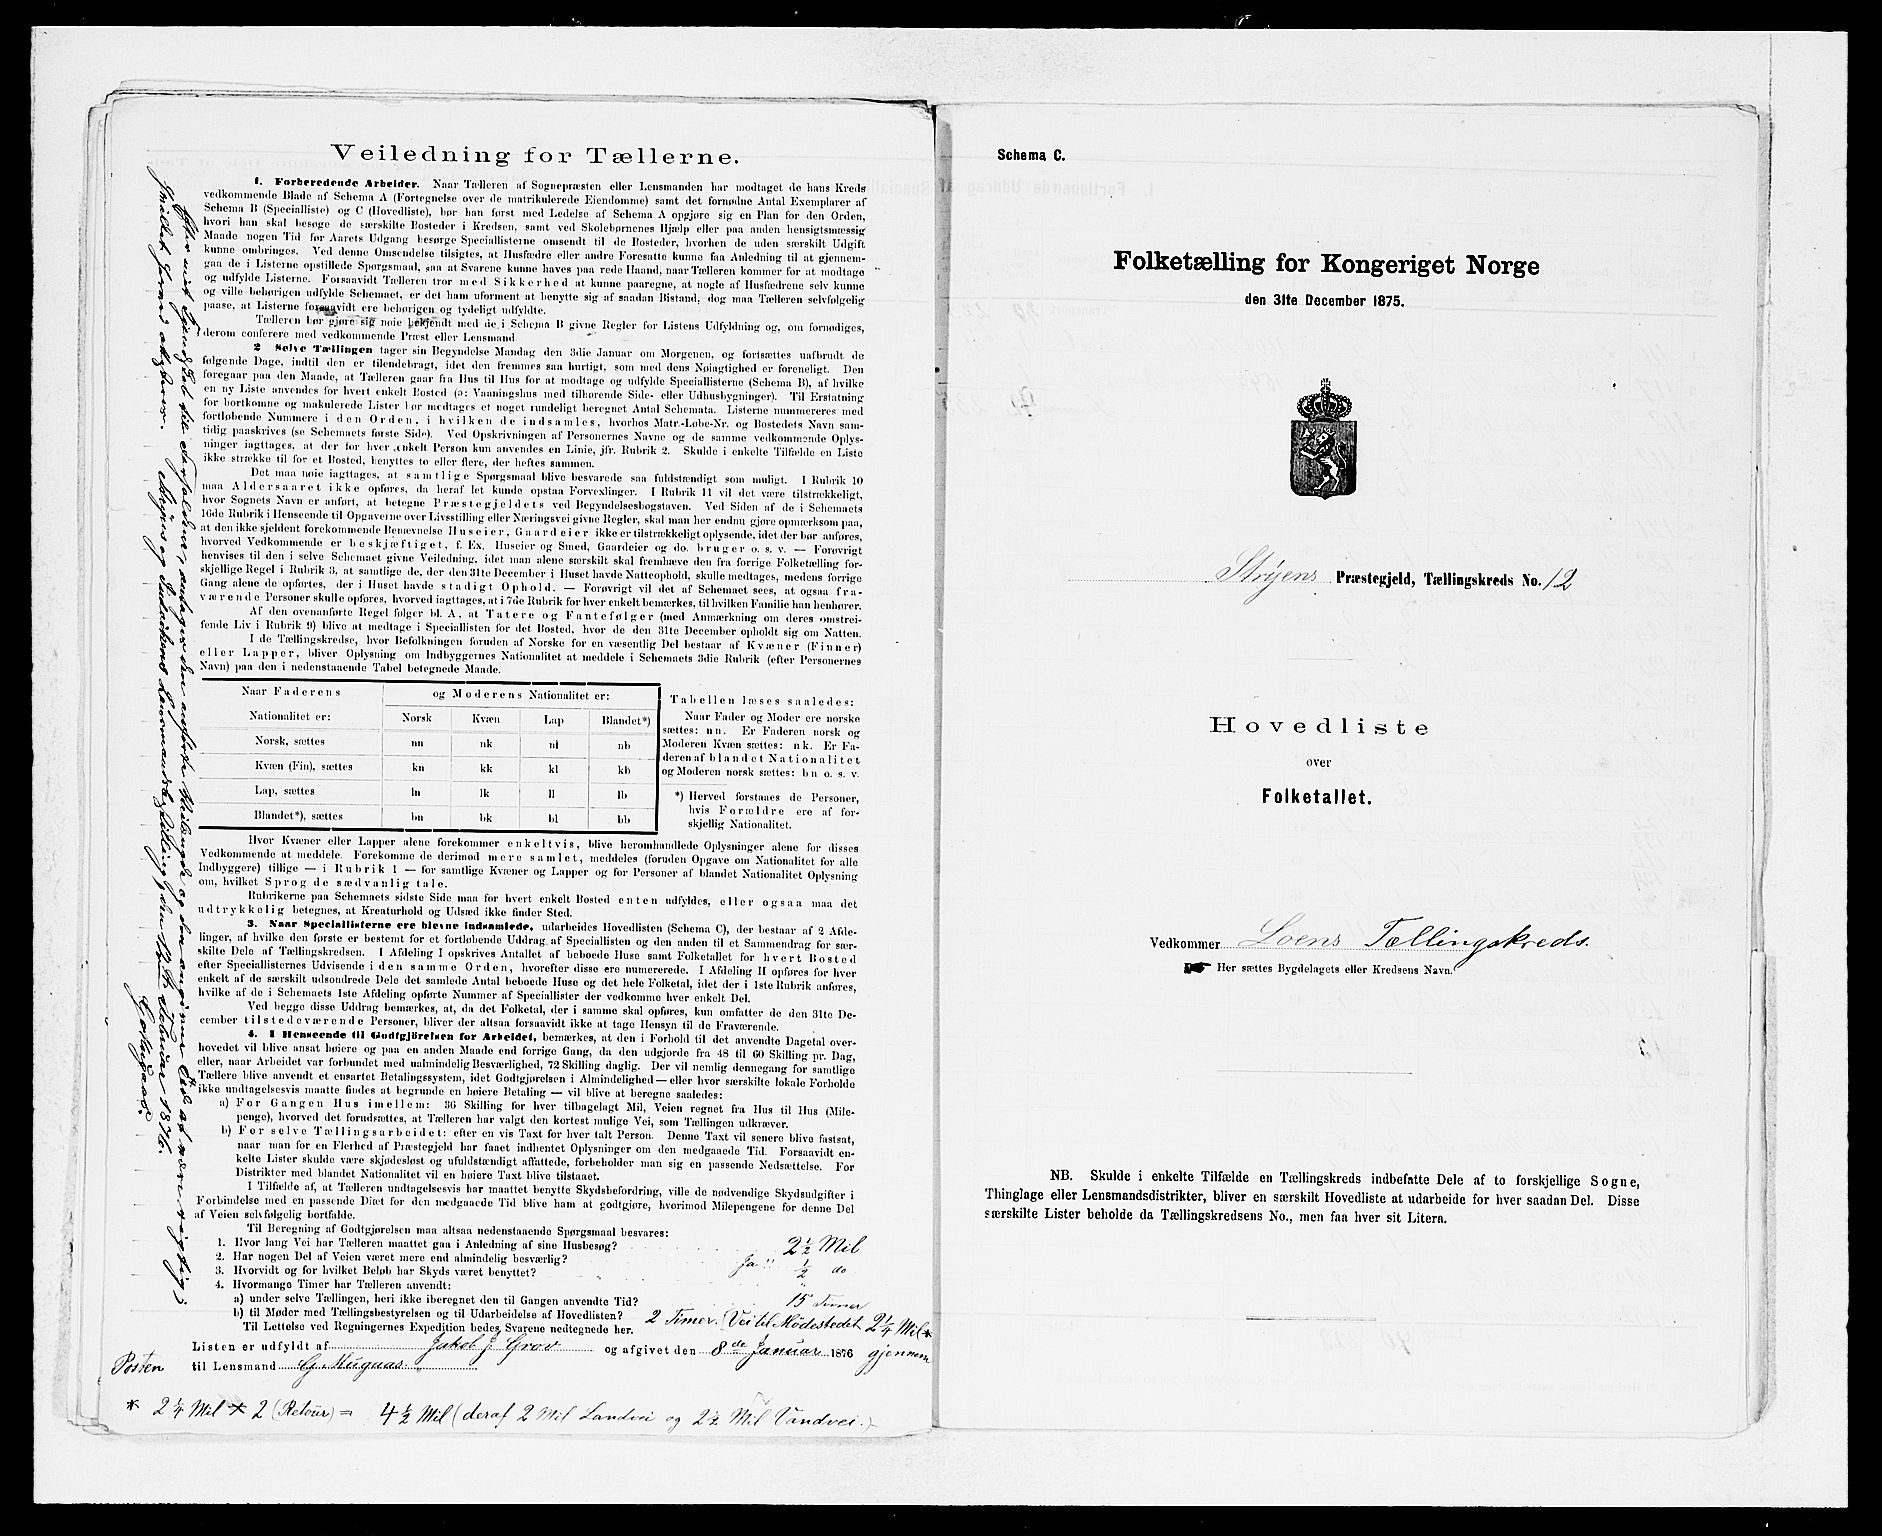 Veiledning for Tællerne.
1. Forberedende Arbeider. Naar Tælleren af Sognepræsten eller Lensmanden har modtaget de hans Kreds
vedkommende Blade af Schema A (Fortegnelse over de matrikulerede Eiendomme) samt det fornødne Antal Exemplarer af
Schema B (Specialliste) og C (Hovedliste), bør han først med Ledelse af Schema A opgjøre sig en Plan for den Orden,
hvori han skal besøge de særskilte Bosteder i Kredsen, samt ved Skolebørnenes Hjælp eller paa anden hensigtsmæssig
Maade nogen Tid før Aarets Udgang besørge Speciallisterne omsendt til de Bosteder, hvorhen de uden særskilt Udgift
kunne ombringes. Ved denne Omsendelse tilsigtes, at Husfædre eller andre Foresatte kunne faa Anledning til at gjennem-
gaa de i Listerne opstillede Spørgsmaal, saa at Svarene kunne haves paa rede Haand, naar Tælleren kommer for at modtage
og udfylde Listerne. Forsaavidt Tælleren tror med Sikkerhed at kunne paaregne, at nogle af Husfædrene selv kunne
og ville behørigen udfylde Schemaet, er det ham uforment at benytte sig af saadan Bistand, dog maa Tælleren selvfølgelig
paase, at Listerne forsaavidt ere behørigen og tydeligt udfyldte.
Tælleren bør gjøre sig nøie bekjendt med de i Schema B givne Regler for Listens Udfyldning og, om fornødiges,
derom conferere med vedkommende Præst eller Lensmand
2 Selve Tællingen tager sin Begyndelse Mandag den 3die Januar om Morgenen, og fortsættes uafbrudt de
følgende Dage, indtil den er tilendebragt, idet den fremmes saa hurtigt, som med dens Nøiagtighed er foreneligt. Den
foregaar paa den Maade, at Tælleren gaar fra Hus til Hus for at modtage og udfylde Speciallisterne (Schema B), af hvilke
en ny Liste anvendes for hvert enkelt Bosted (ɔ: Vaaningshus med tilhørende Side- eller Udhusbygninger). Til Erstatning
for bortkomne og makulerede Lister bør medtages et noget rundeligt beregnet Antal Schemata. Listerne nummereres med
fortløbende Nummere i den Orden, i hvilken de indsamles, hvorhos Matr.-Løbe-Nr. og Bostedets Navn sam-
tidig paaskrives (se Schemaets første Side). Ved Opskrivningen af Personernes Navne og de samme vedkommende Oplys-
ninger iagttages, at der for hver enkelt Person kun anvendes en Linie, jfr. Rubrik 2. Skulde i enkelte Tilfælde en Liste
ikke strække til for et Bosted, benyttes to eller flere, der heftes sammen.
Det maa nøie iagttages, at samtlige Spørgsmaal blive besvarede saa fuldstændigt som muligt. I Rubrik 10
maa Aldersaaret ikke opføres, da heraf let kunde opstaa Forvexlinger. I Rubrik 11 vil det være tilstrækkeligt,
hvor Sognets Navn er anført, at betegne Præstegjeldets ved Begyndelsesbogstaven. Ved Siden af de i Schemaets
10de Rubrik i Henseende til Opgaverne over Livsstilling eller Næringsvei givne Regler, skal man her endnu gjøre opmærksom paa,
at den ikke sjeldent forekommende Benævnelse Huseier, Gaardeier ikke er tilstrækkeligt oplysende, idet der bør anføres,
hvorved Vedkommende er beskjæftiget, f. Ex. Huseier og Smed, Gaardeier og do. bruger o. s. v. — Forøvrigt
henvises til den i selve Schemaet givne Veiledning, idet man alene særskilt skal fremhæve den fra forrige Folketælling for-
skjellige Regel i Rubrik 3, at samtlige de, der den 31te December i Huset havde Natteophold, skulle medtages, medens forrige
Gang alene de opførtes, der i Huset havde stadigt Ophold. — Forøvrigt vil det af Schemaet sees, at ogsaa fra-
værende Personer skulle opføres, hvorved iagttages, at i 7de Rubrik for hver enkelt bemærkes, til hvilken Familie han henhører.
Af den ovenanførte Regel følger bl. A, at Tatere og Fantefølger (med Anmærkning om deres omstrei-
fende Liv i Rubrik 9) blive at medtage i Speciallisten for det Bosted, hvor de den 31te December opholdt sig om Natten.
I de Tællingskredse, hvor Befolkningen foruden af Norske for en væsentlig Del bestaar af Kvæner (Finner)
eller Lapper, bliver Oplysning om Indbyggernes Nationalitet at meddele i Schemaets 3die Rubrik (efter Personernes
Navn) paa den i nedenstaaende Tabel betegnede Maade.
Naar Faderens og Moderens Nationalitet er:
Nationalitet er: Norsk Kvæn Lap Blandet*)
Norsk, sættes nn nk nl nb
Kvæn (Fin), sættes kn kk kl kb
Lap, sættes ln lk ll lb
Blandet*), sættes bn bk bl bb
Tabellen læses saaledes:
Naar Fader og Moder ere norske
sættes: nn. Er Faderen norsk og
Moderen Kvæn sættes: nk. Er Fa-
deren af blandet Nationalitet
og Moderen norsk sættes: bn o. s. v.
*) Herved forstaaes de Personer,
hvis Forældre ere af for-
skjellig Nationalitet.
Hvor Kvæner eller Lapper alene forekommer enkeltvis, blive heromhandlede Oplysninger alene for disses
Vedkommende at meddele. Forekomme de derimod mere samlet, meddeles (foruden Opgave om Nationalitet for alle
Indbyggere) tillige — i Rubrik 1 — for samtlige Kvæner og Lapper og for Personer af blandet Nationalitet Oplysning
om, hvilket Sprog de sædvanlig tale.
Rubrikerne paa Schemaets sidste Side maa for hvert enkelt Bosted enten udfyldes, eller ogsaa maa det
udtrykkelig betegnes, at Kreaturhold og Udsæd ikke finder Sted.
3. Naar Speciallisterne ere blevne indsamlede, udarbeides Hovedlisten (Schema C), der bestaar af 2 Afde-
linger, af hvilke den første er bestemt for et fortløbende Uddrag af Speciallisten og den anden til et Sammendrag for sær-
skilte Dele af Tællingskredsen. I Afdeling I opskrives Antallet af beboede Huse samt Folketallet for hvert Bosted
efter Speciallisternes Udvisende i den samme Orden, hvorefter disse ere nummererede. I Afdeling II opføres for hver
enkelt af de særskilt udsondrede Dele det samlede Antal beboede Huse og det hele Folketal, idet der i 1ste Rubrik anføres,
hvilke af de i Schemaets 1ste Afdeling opførte Nummer af Speciallister der vedkomme hver enkelt Del.
Ved begge disse Uddrag bemærkes, at, da det Folketal, der i samme skal opføres, kun omfatter de den 31te De-
cember tilstedeværende Personer, bliver der altsaa forsaavidt ikke at tage Hensyn til de Fraværende.
4. I Henseende til Godtgjörelsen for Arbeidet, bemærkes, at den i Forhold til det anvendte Dagetal over-
hovedet vil blive ansat høiere og paa en anden Maade end forrige Gang, da den udgjorde fra 48 til 60 Skilling pr. Dag,
eller, naar Arbeidet var forbundet med ualmindelig Besværlighed, 72 Skilling daglig. Der vil nemlig dennegang for samtlige
Tællere blive anvendt et ensartet Betalingssystem, idet Godtgjørelsen i Almindelighed — eller hvor særskilte lokale Forholde
ikke undtagelsesvis maatte findes at begrunde en høiere Betaling — vil blive at beregne saaledes:
a) For Gangen Hus imellem: 36 Skilling for hver tilbagelagt Mil, Veien regnet fra Hus til Hus (Mile-
penge), hvorved det forudsættes, at Tælleren har valgt den kortest mulige Vei, som Tællingen udkræver.
b) For selve Tællingsarbeidet: efter en vis Taxt for hver talt Person. Denne Taxt vil senere blive fastsat,
naar man for en Flerhed af Præstegjeld har faaet indhentet Oplysninger om den medgaaede Tid. Forsaavidt en-
kelte Lister skulde være skjødesløst og ufuldstændigt affattede, forbeholder man sig en passende Nedsættelse. For
Distrikter med blandet Nationalitet vil en høiere Taxt blive tilstaaet.
I Tilfælde af, at Tælleren undtagelsesvis har maattet benytte Skydsbefordring, ville de nødvendige Skydsudgifter i
Forbindelse med en passende Diæt for den medgaaede Tid blive ham at godtgjøre, hvorimod Milepengene for denne Del
af Veien selvfølgelig bortfalde.
Til Beregning af Godtgjørelsen maa altsaa nedenstaaende Spørgsmaal besvares:
1. Hvor lang Vei har Tælleren maattet gaa i Anledning af sine Husbesøg? 2 1/2 Mil
2. Har nogen Del af Veien været mere end almindelig besværlig? Ja 1/2 do
3. Hvorvidt og for hvilket Beløb har Skyds været benyttet? "
4. Hvormange Timer har Tælleren anvendt:
a) under selve Tællingen, heri ikke iberegnet den til Gangen anvendte Tid? 15 Timer
b) til Møder med Tællingsbestyrelsen og til Udarbeidelse af Hovedlisten? 2 Timer. (Vei til Mödestedet 2 1/4 Mil*
Til Lettelse ved Regningernes Expedition bedes Svarene nedtegnede her.
Listen er udfyldt af Jakob J. Grov og afgivet den 8de Januar 1876 gjennem
Posten til Lensmand G. Mugaas
* 2 1/4 Mil × 2 (Retour) = 4 1/2 Mil (deraf 2 Mil Landvei og 2 1/2 Mil Vandvei.)
Efter mit Kjendskab til Forholdene, antager den anførte Veilængde og den angivne Tid at være rigtig;
Lensmandsbestilling, den Februar 1876.
G. Mugaas.
Schema C.
Folketælling for Kongeriget Norge
den 31te December 1875.
Stryens Præstegjeld, Tællingskreds No. 12
Hovedliste
over
Folketallet.
Vedkommer Loens Tællingskreds.
Her sættes Bygdelagets eller Kredsens Navn.
NB. Skulde i enkelte Tilfælde en Tællingskreds indbefatte Dele af to forskjellige Sogne,
Thinglage eller Lensmandsdistrikter, bliver en særskilt Hovedliste at udarbeide for hver saadan Del. Disse
særskilte Lister beholde da Tællingskredsens No., men faa hver sit Litera.